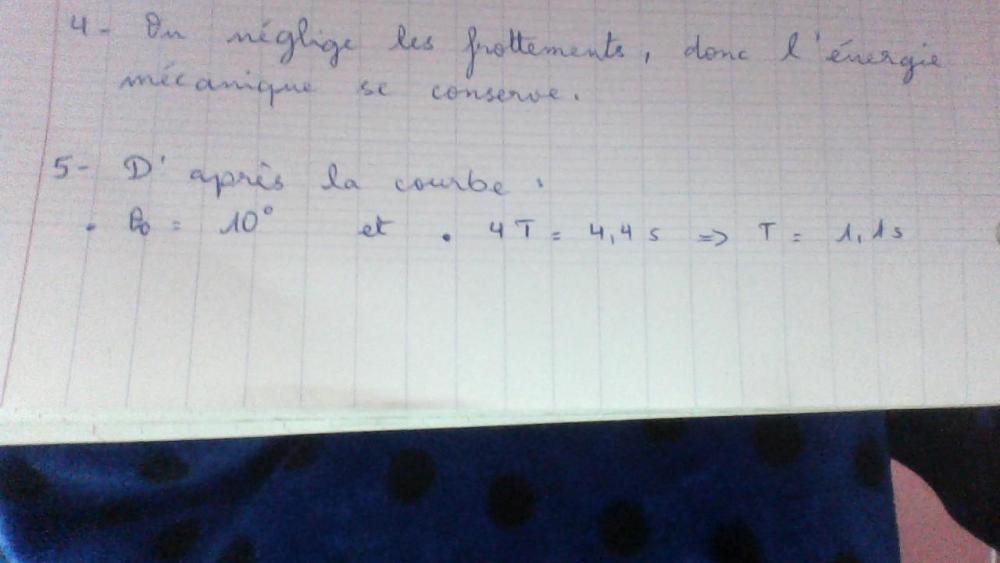 4- On néglige les frottements, donc l'énergie
mécanique se conserve.
5- D'après la courbe :
• θ₀ = 10° et • 4T = 4,4 s => T = 1,1s